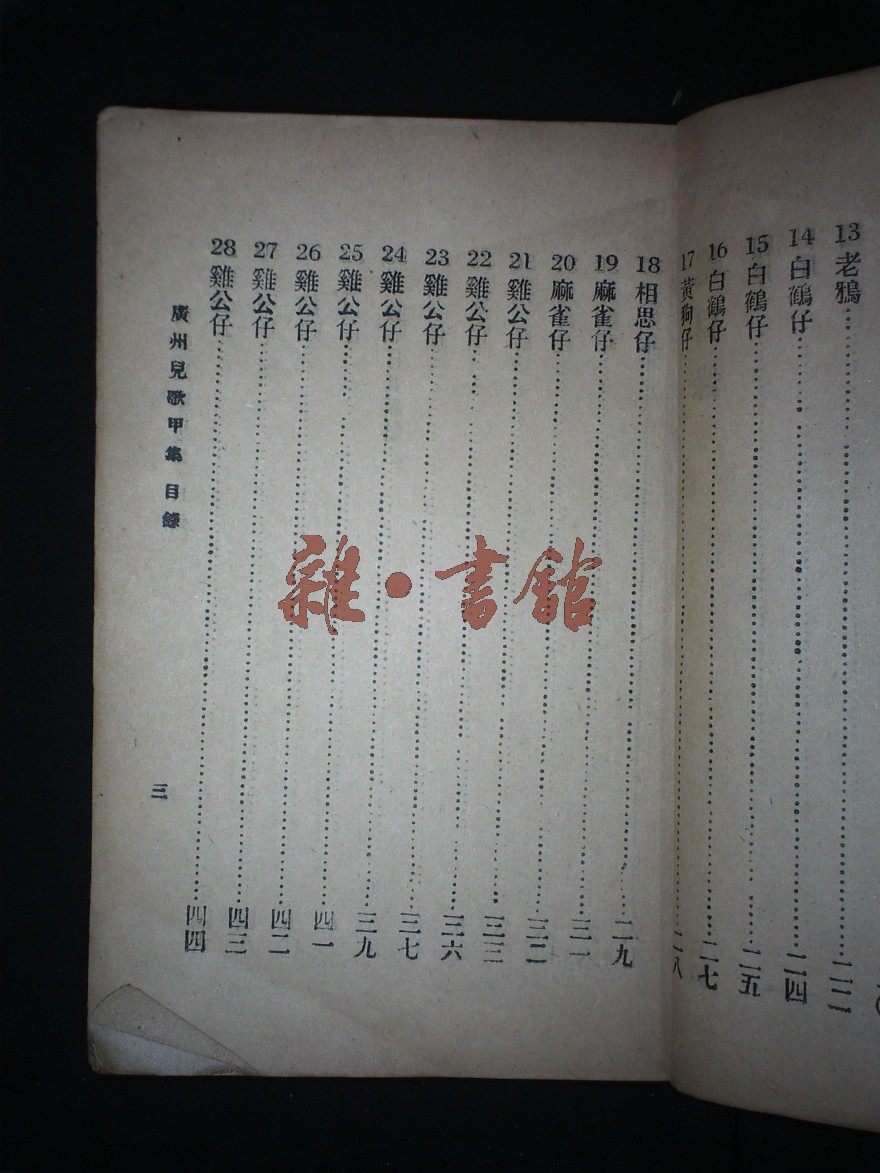 13 老鴉……二二
14 白鶴仔……二四
15 白鶴仔……二五
16 白鶴仔……二七
17 黃狗仔……二八
18 相思仔……二九
19 麻雀仔……三一
20 麻雀仔……三二
21 雞公仔……三三
22 雞公仔……三六
23 雞公仔……三七
24 雞公仔……三九
25 雞公仔……四一
26 雞公仔……四二
27 雞公仔……四三
28 雞公仔……四四
廣州兒歌甲集 目錄
三
雜·書館